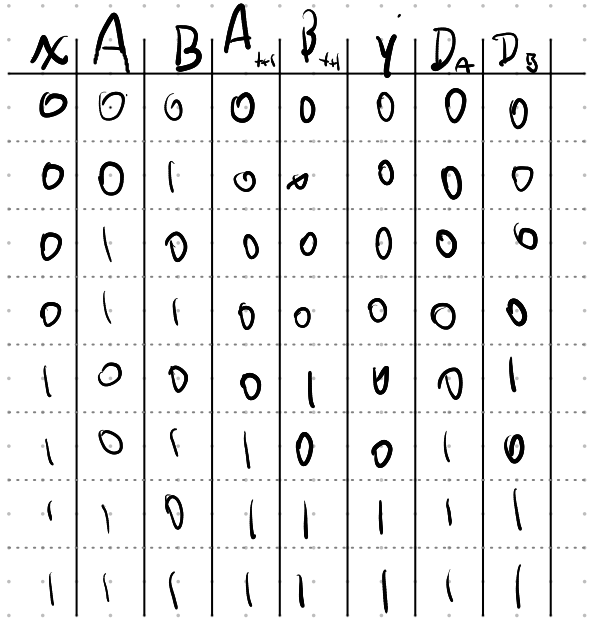 x A B A_{t+1} B_{t+1} y D_A D_B
0 0 0 0 0 0 0 0
0 0 1 0 0 0 0 0
0 1 0 0 0 0 0 0
0 1 1 0 0 0 0 0
1 0 0 0 1 0 0 1
1 0 1 1 0 0 1 0
1 1 0 1 1 1 1 1
1 1 1 1 1 1 1 1